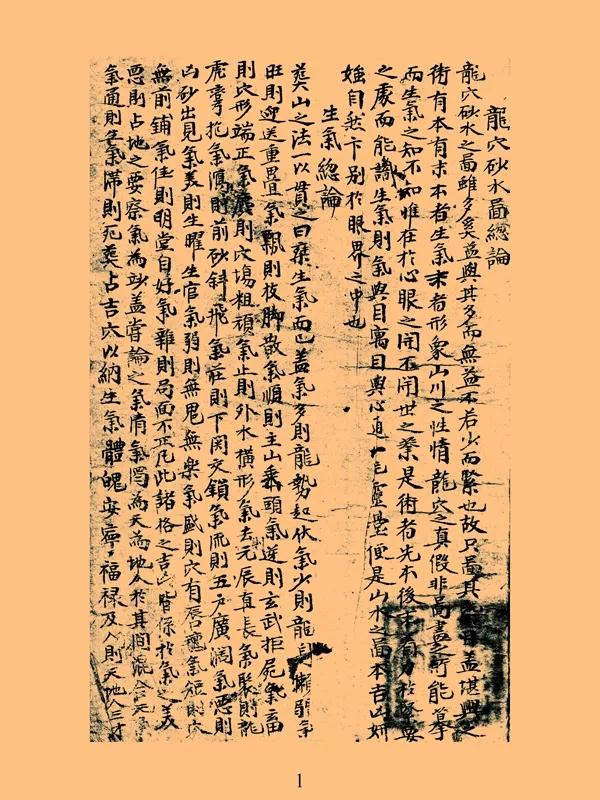 龍穴砂水啚緫論
龍穴砂水之啚雖多奚益與其多而無益不若少而緊也故只啚其盖堪輿之
術有本有末本者生氣末者形象山川之性情龍穴之真假非啚盡之所能摹
而生氣之知不知惟在於心眼之開不開世之業是術者先本後末
之處而能識生氣則氣與目寓目與心通一毛靈臺便是山水之啚本吉凶妍
媸自然卞别於眼界之中也
生氣緫論
葬山之法一以貫之曰乗生氣而已盖氣多則龍勢起伏氣少則龍身懶弱氣
旺則迎送重畳氣飄則枝脚散氣順則主山垂頭氣逆則玄武拒屍氣畜
則穴形端正氣則穴塲粗頑氣止則外水橫形氣去元辰直長氣聚則龍
虎寧抱氣瀉則前砂斜飛氣莊則下関交鎖氣流則五户廣濶氣惡則
凶砂出見氣美則生曜生官氣弱則無鬼無樂氣盛則穴有唇氣短則穴
無前鋪氣佳則明堂自好氣雜則局面不正凡此諸格之吉凶皆係於氣之美
惡則占地之要察氣為妙盖嘗論之氣清氣濁為天為地人於其間混合
氣通則生氣滯則死葬占吉穴以納生氣體魄安寧福禄及人則天地人三才
1